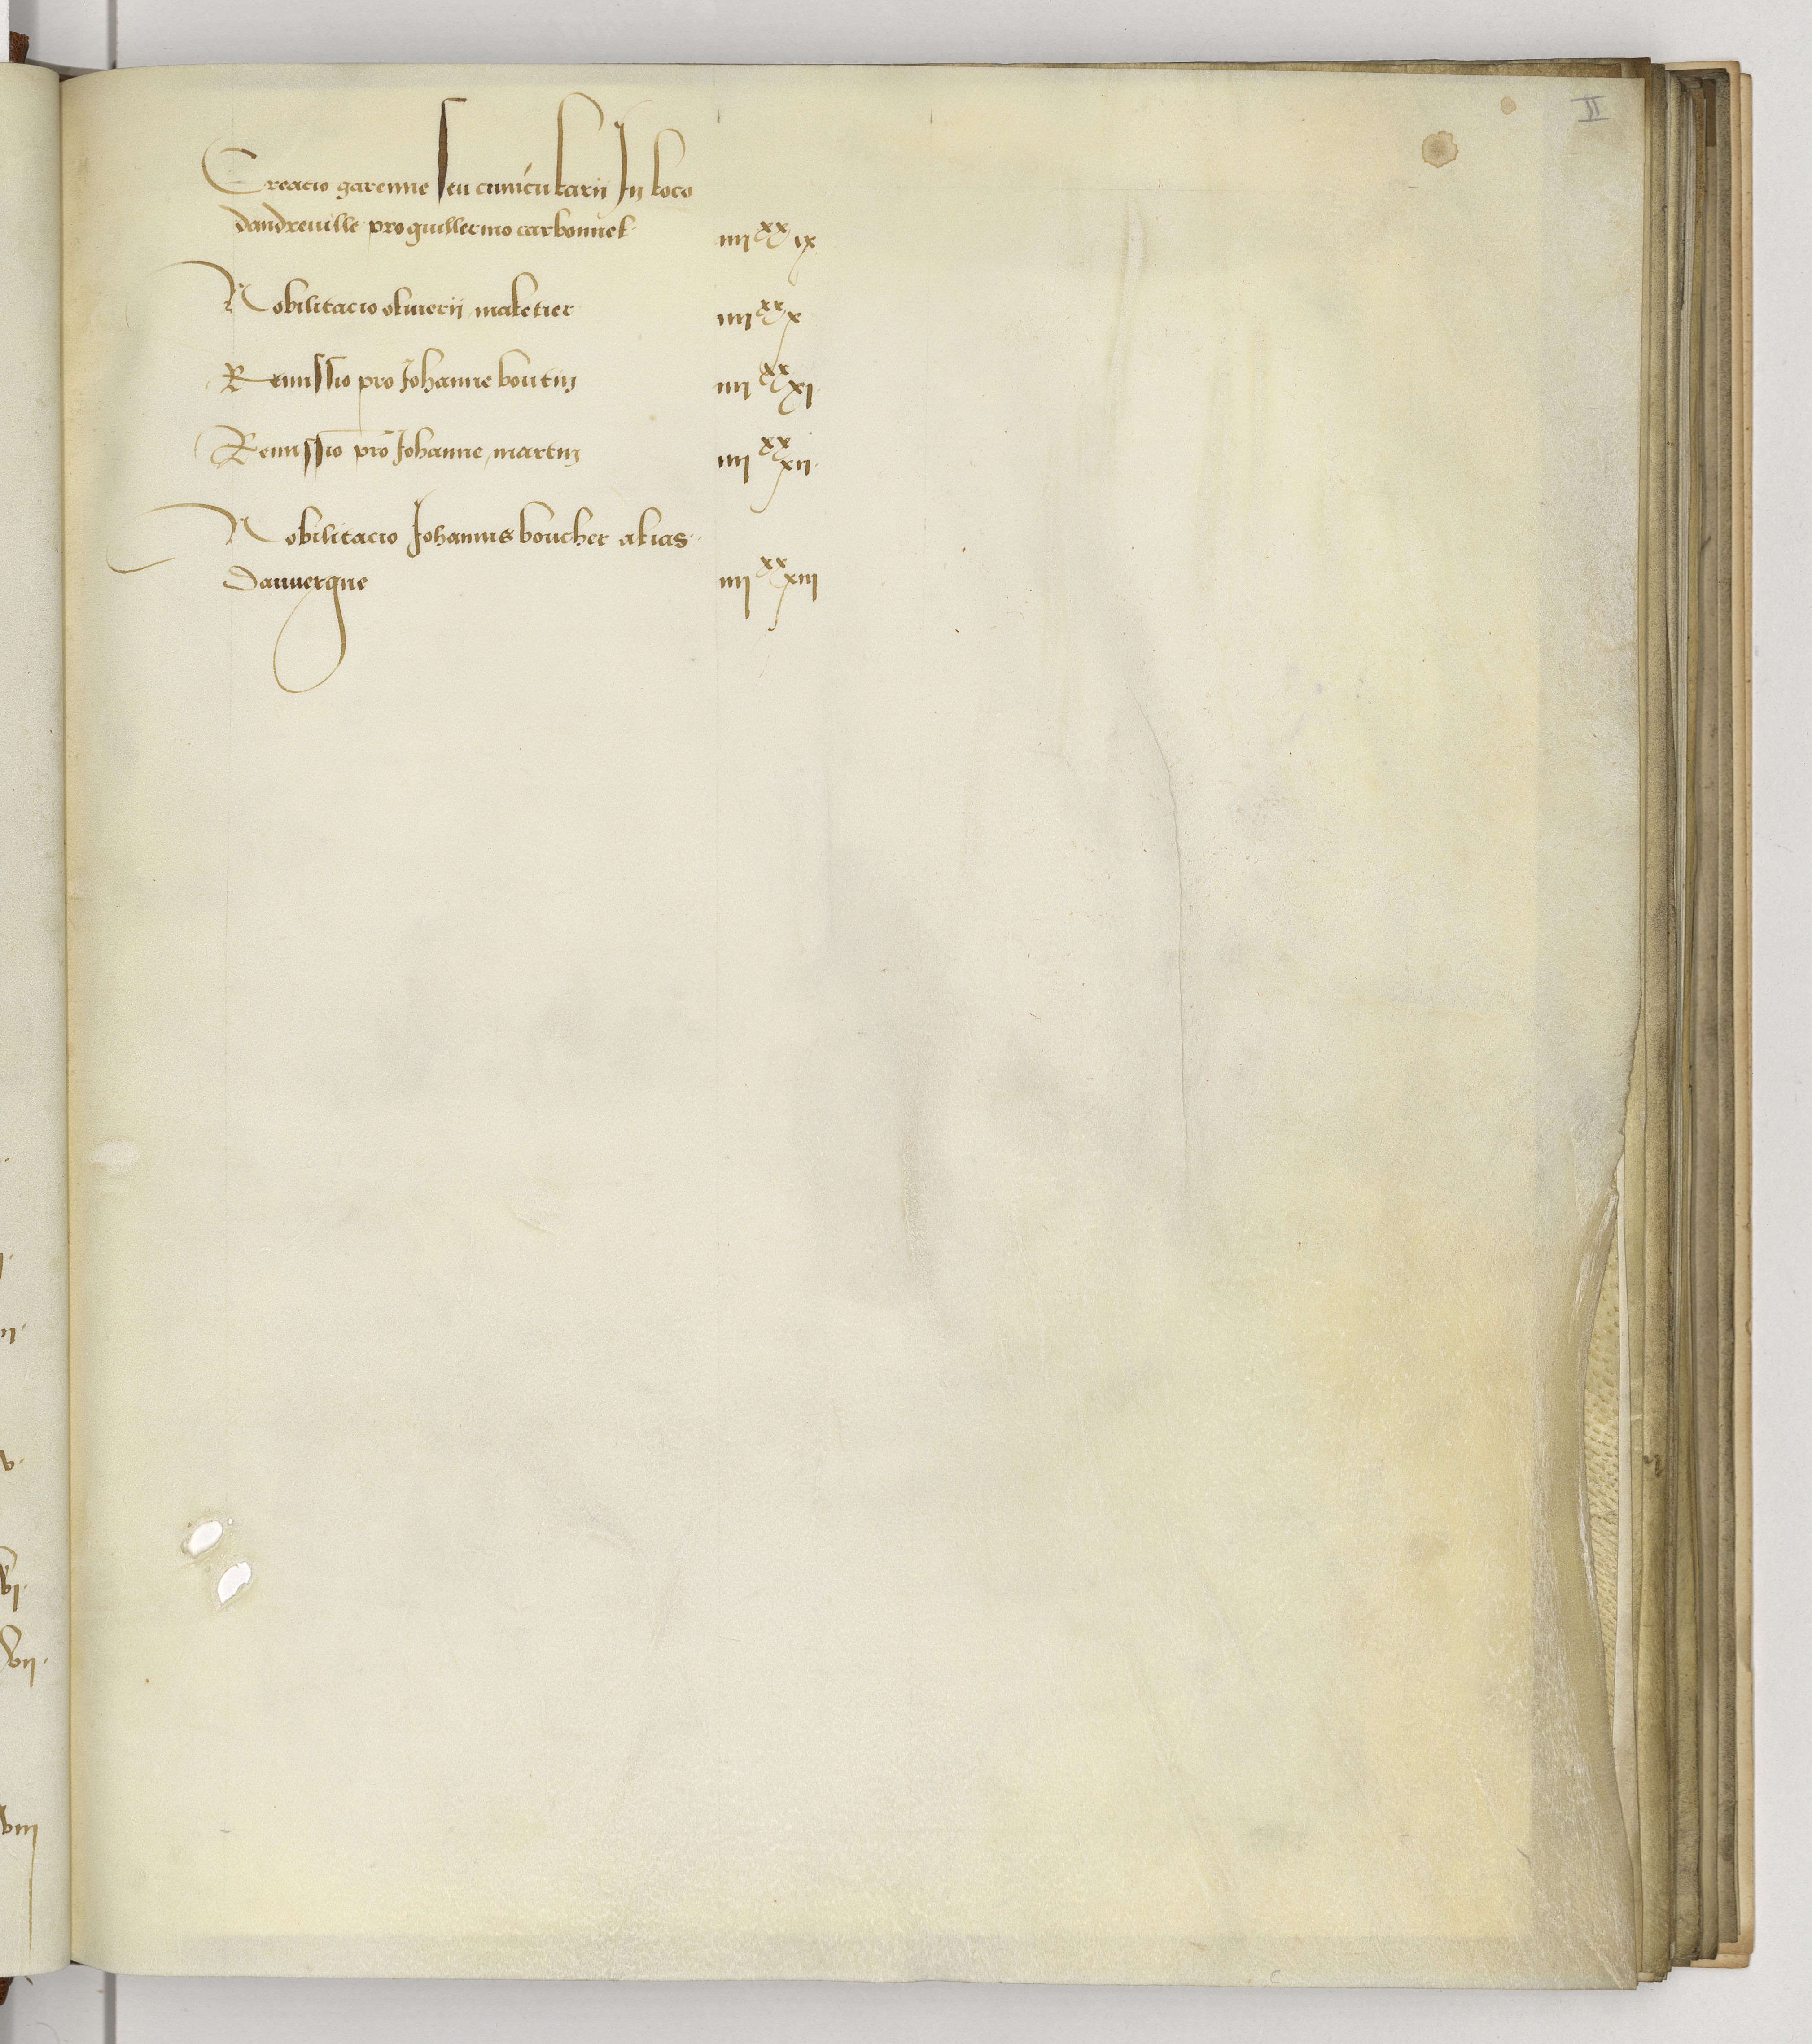 II
Creacio garenne seu cunicularii In loco
dandreuille pro guillermo carbonnel iiij xx ix
Nobilitacio oliuerii maletier iiij xx x
Remissio pro Johanne boutin iiij xx xj
Remissio pro Johanne martin iiij xx xij
Nobilitacio Johannis boucher alias
Dauuergne iiij xx xiij